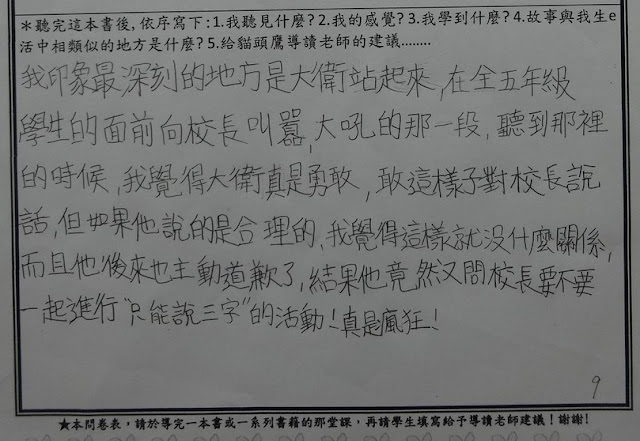 ＊聽完這本書後，依序寫下：1.我聽見什麼？2.我的感覺？3.我學到什麼？4.故事與我生e
活中相類似的地方是什麼？5.給貓頭鷹導讀老師的建議........
我印象最深刻的地方是大衛站起來，在全五年級
學生的面前向校長叫囂，大吼的那一段，聽到那裡
的時候，我覺得大衛真是勇敢，敢這樣子對校長說
話，但如果他說的是合理的，我覺得這樣就沒什麼關係，
而且他後來也主動道歉了，結果他竟然又問校長要不要
一起進行"只能說三字"的活動！真是瘋狂！
9
★本問卷表，請於導完一本書或一系列書籍的那堂課，再請學生填寫給予導讀老師建議！謝謝！